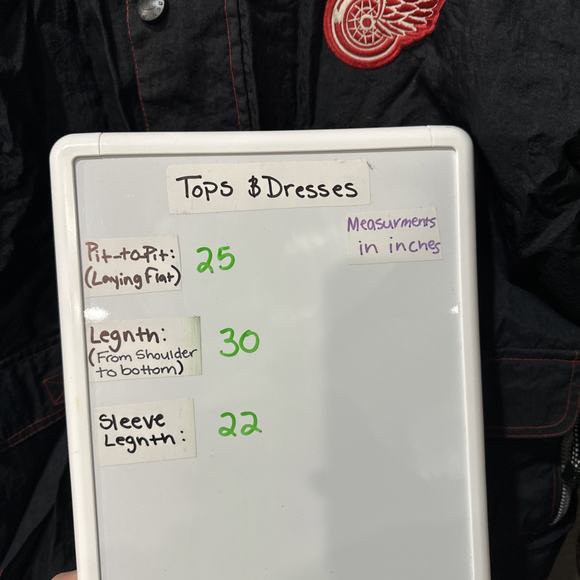 Tops & Dresses
Measurments
in inches
Pit-to-Pit:
(Laying Flat)
25
Legnth:
(From Shoulder
to bottom)
30
Sleeve
Legnth:
22